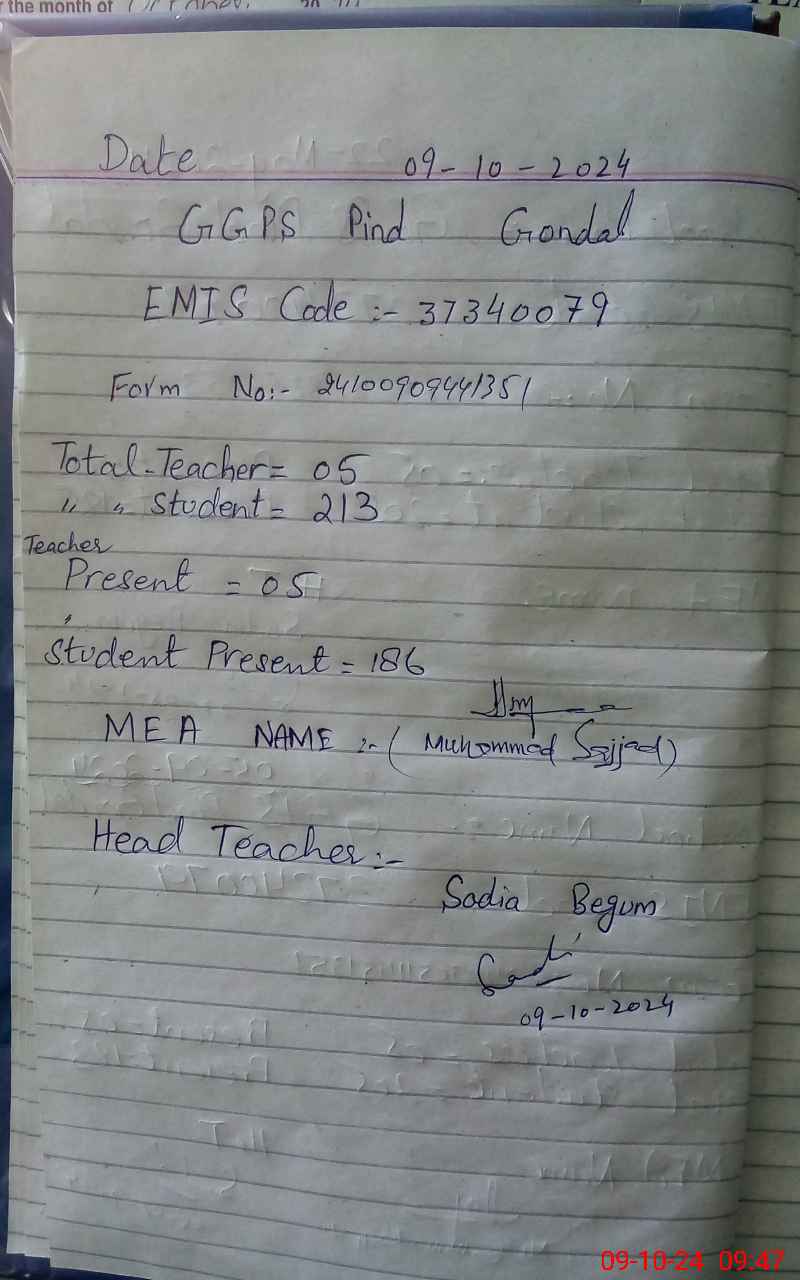 the month of
Date 09-10-2024
GGPS Pind Gondal
EMIS Code :- 37340079
Form No:- 24100909441351
Total-Teacher= 05
" " Student= 213
Teacher
Present = 05
Student Present = 186
MEA NAME :- ( Muhammad Sajjad)
Head Teacher:-
Sadia Begum
09-10-2024
09-10-24 09:47